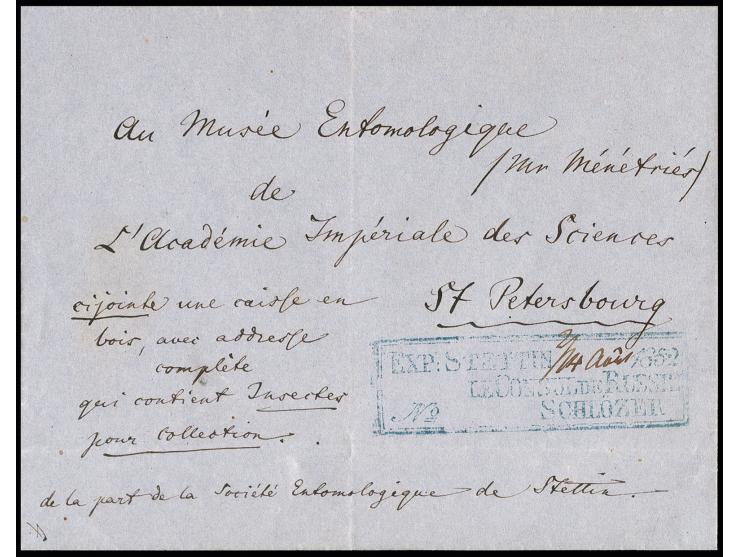 Au Musée Entomologique
(Mr Ménétriés)
de
L'Académie Impériale des Sciences
St Petersbourg
cijointe une caisse en
bois, avec addresse
complète
qui contient Insectes
pour collection.
EXP: STETTIN 2/14 Août 1852
LE CONSUL DE RUSSIE
No SCHLÖZER
de la part de la Société Entomologique de Stettin.